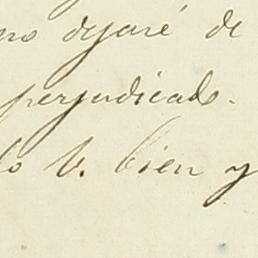 no dejaré de
perjudicado.
lo V. bien y